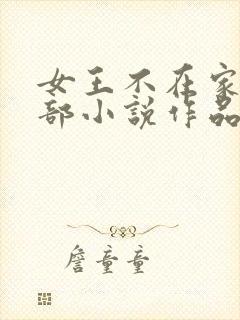 女王不在家
部小说作品
詹童童